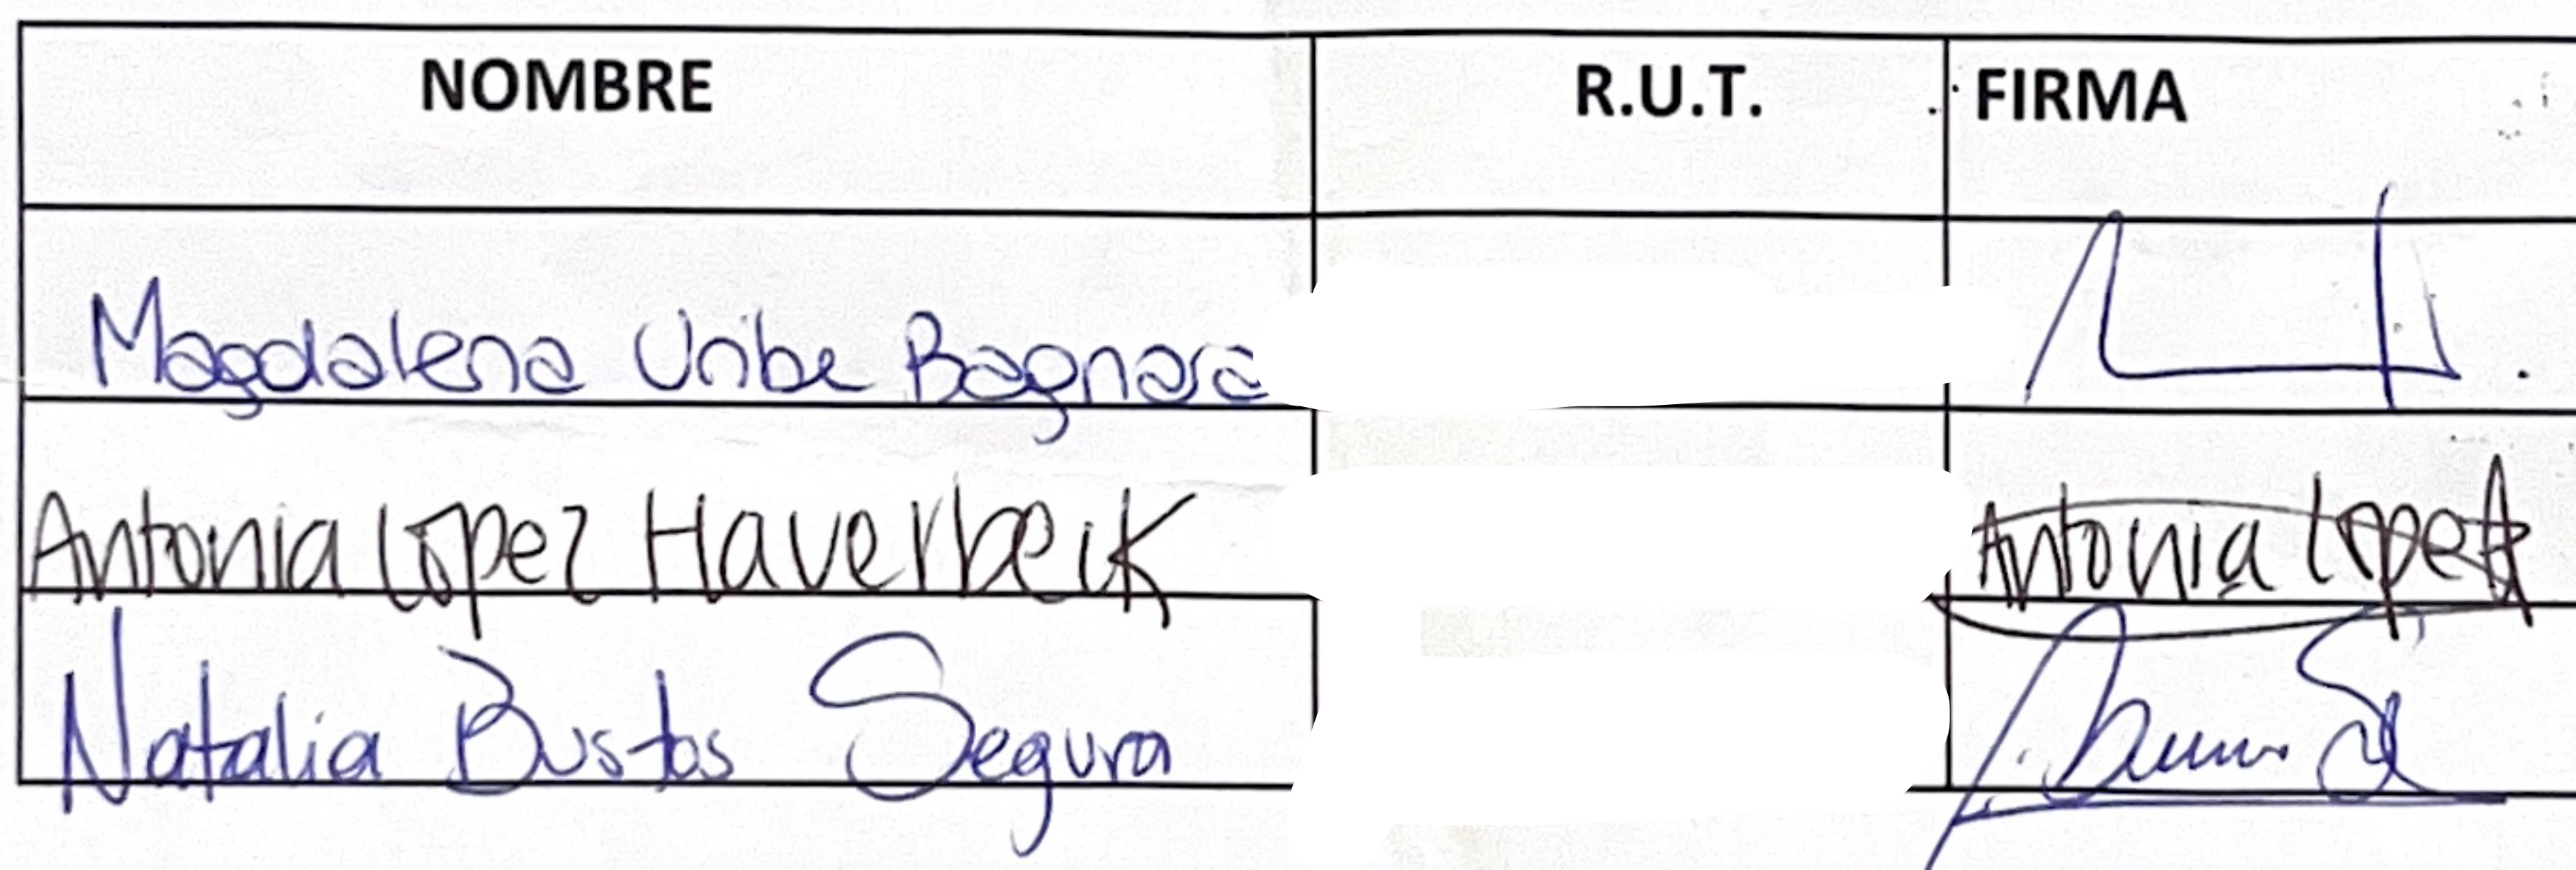 NOMBRE R.U.T. FIRMA
Magdalena Uribe Bagnara
Antonia López Haverbeck Antonia Lopez
Natalia Bustos Segura